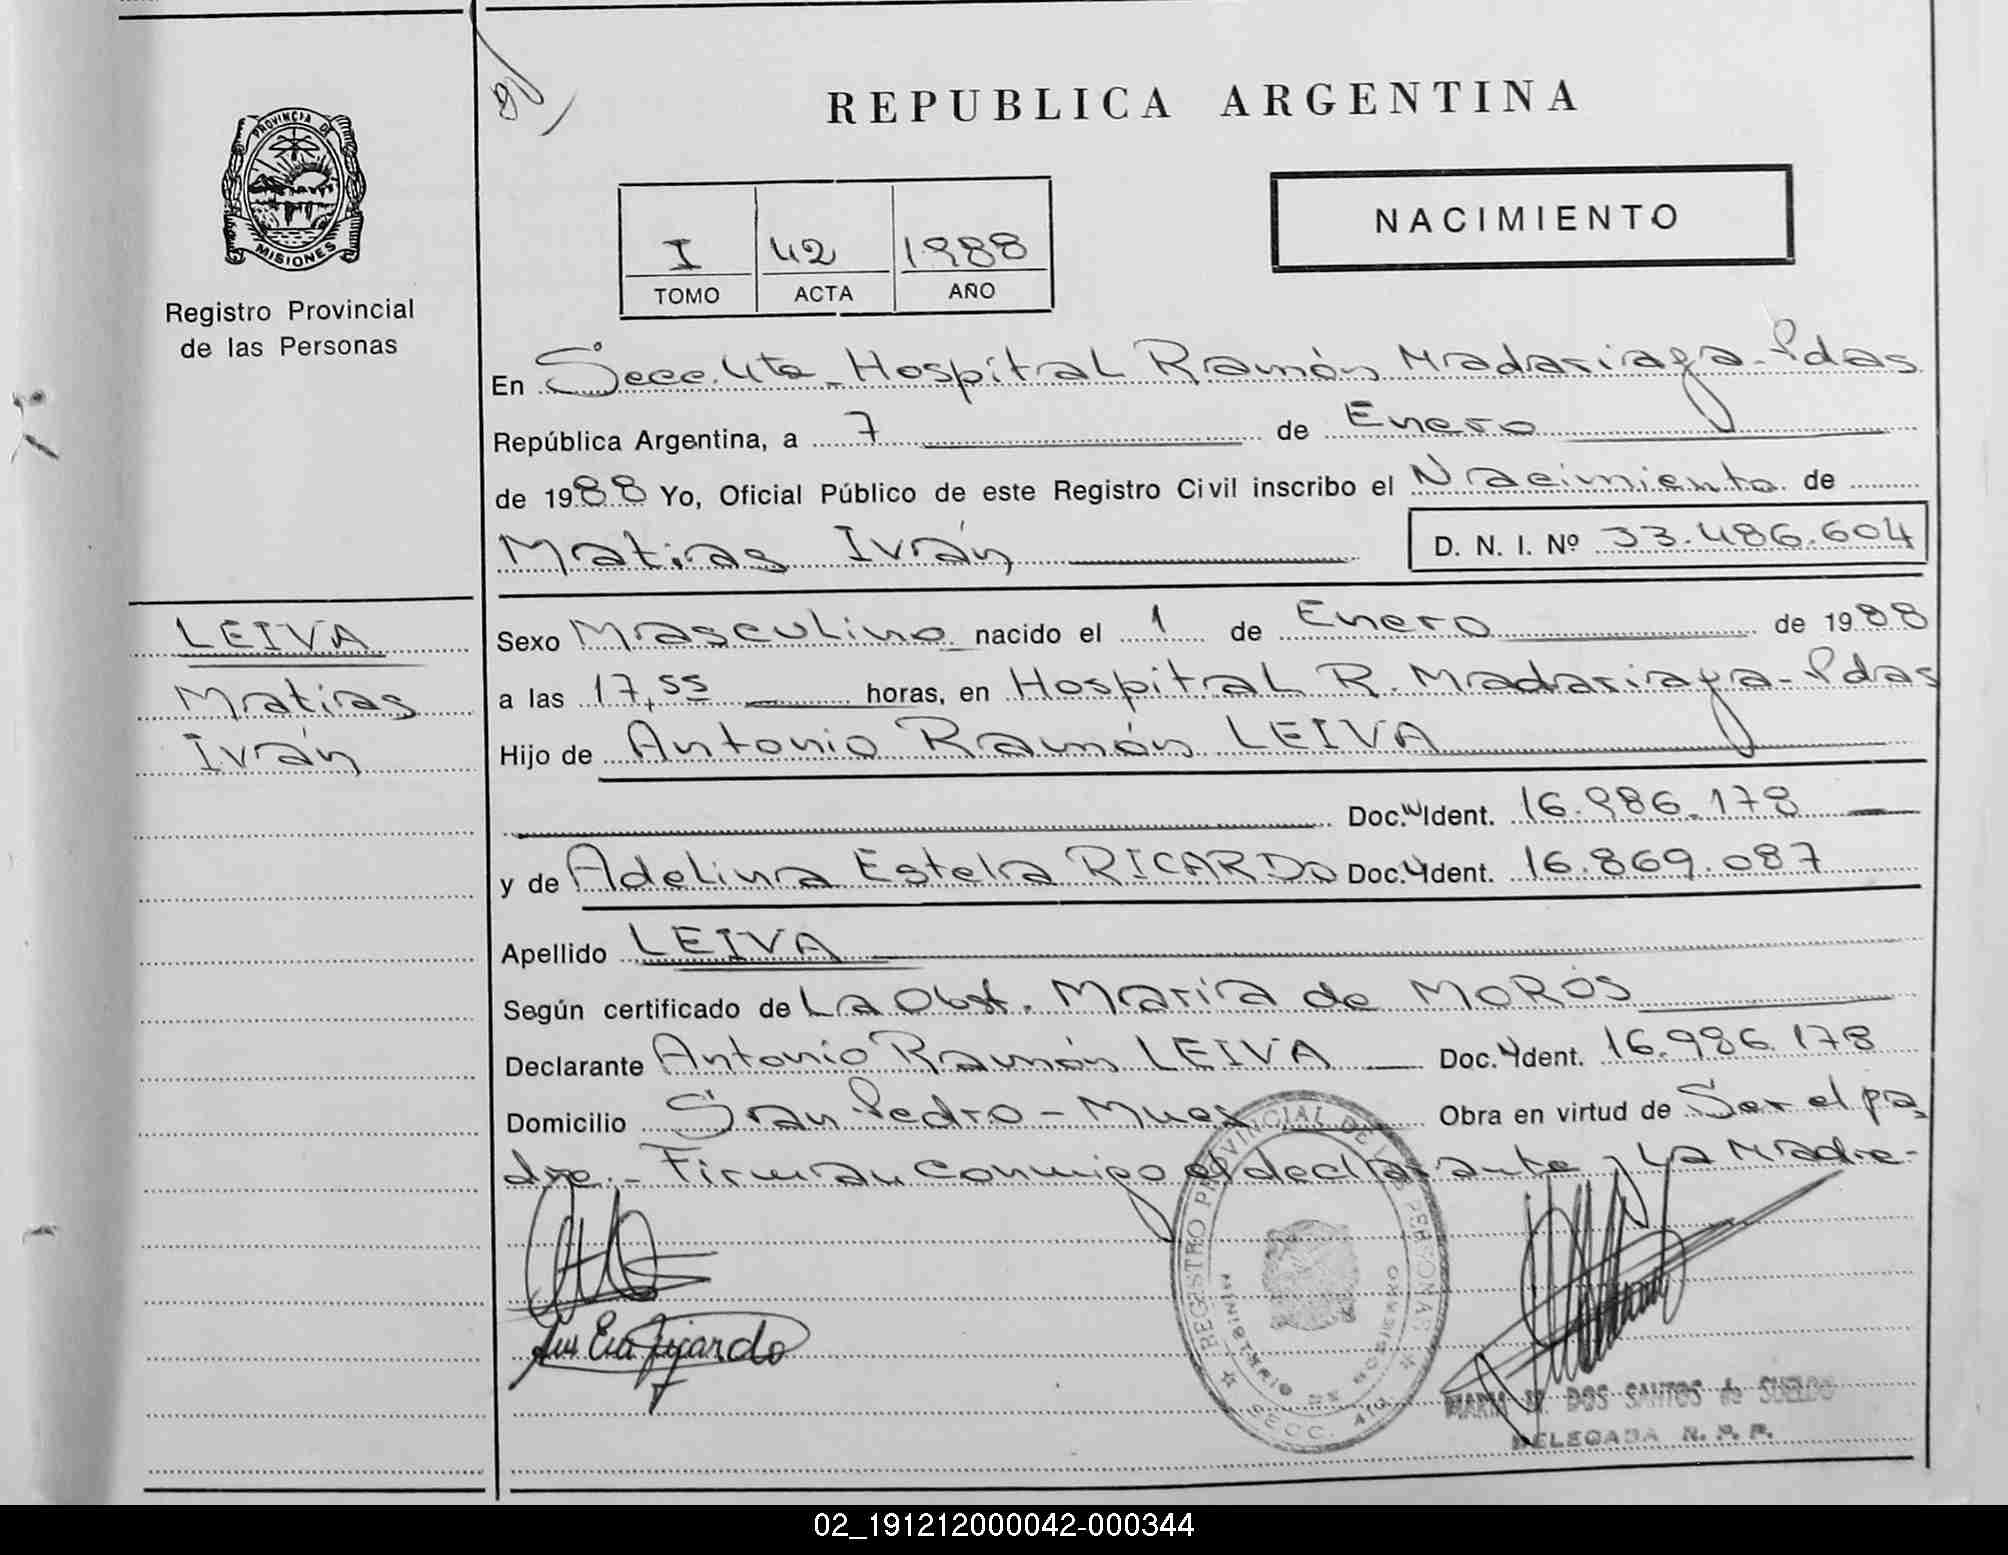 REPUBLICA ARGENTINA
PROVINCIA DE
MISIONES
Registro Provincial
de las Personas
NACIMIENTO
I 42 1988
TOMO ACTA AÑO
En Secc. 4ta - Hospital Ramón Madariaga - Pdas
República Argentina, a 7 de Enero
de 1988 Yo, Oficial Público de este Registro Civil inscribo el Nacimiento de
Matias Iván D. N. I. Nº 33.486.604
LEIVA
Matias
Iván
Sexo Masculino nacido el 1 de Enero de 1988
a las 17,55 horas, en Hospital R. Madariaga - Pdas
Hijo de Antonio Ramón LEIVA
Doc. Ident. 16.986.178
y de Adelina Estela RICARDO Doc. Ident. 16.869.087
Apellido LEIVA
Según certificado de La Obst. María de MOROS
Declarante Antonio Ramón LEIVA Doc. Ident. 16.986.178
Domicilio San Pedro - Mnes Obra en virtud de Ser el pa
dre.- Firman conmigo el declarante y La Madre-
REGISTRO PROVINCIAL DE LAS PERSONAS
MINISTERIO DE GOBIERNO
SECC. 4ta
MARIA M. DOS SANTOS de SUELDO
DELEGADA R. P. P.
02_191212000042-000344